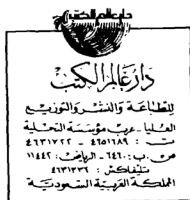 دار عالم الكتب
للطباعة والنشر والتوزيع
العليا - غرب مؤسسة التحلية
ت : ٤٦٥١٦٨٩ - ٤٦٣١٧٢٢
ص . ب : ٦٤٦٠ - الرياض: ١١٤٤٢
تليفاكس : ٤٦٣١٣٣٦
المملكة العربية السعودية